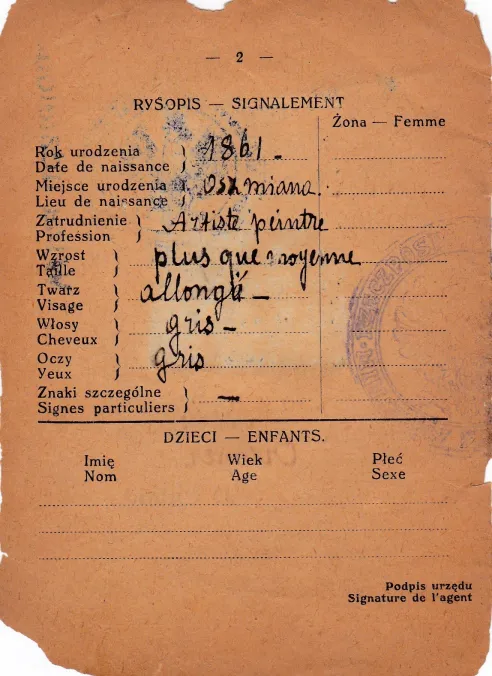 — 2 —
RYSOPIS — SIGNALEMENT
Żona — Femme
Rok urodzenia
Date de naissance } 1861 -
Miejsce urodzenia
Lieu de naissance } Oszmiana
Zatrudnienie
Profession } Artiste peintre
Wzrost
Taille } plus que moyenne
Twarz
Visage } allongé —
Włosy
Cheveux } gris —
Oczy
Yeux } gris
Znaki szczególne
Signes particuliers } —
DZIECI — ENFANTS.
Imię Wiek Płeć
Nom Age Sexe
Podpis urzędu
Signature de l'agent